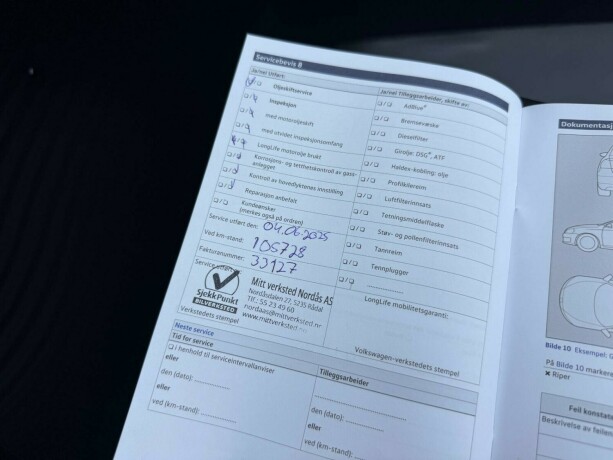 Servicebevis 8
Ja/nei Utført:
Oljeskiftservice
Inspeksjon
med motoroljeskift
med utvidet inspeksjonsomfang
LongLife motorolje brukt
Korrosjons- og tetthetskontroll av gass-
anlegget
Kontroll av hovedlyktenes innstilling
Reparasjon anbefalt
Kundeønsker
(merkes også på ordren)
Service utført den: 04.06.2025
Ved km-stand: 105728
Fakturanummer: 33127
Service utført
SjekkPunkt
BILVERKSTED
Mitt verksted Nordås AS
Nordåsdalen 27, 5235 Rådal
Tlf.: 55 23 49 60
nordaas@mittverksted.no
www.mittverksted.no
Verkstedets stempel
Ja/nei Tilleggsarbeider, skifte av:
AdBlue®
Bremsevæske
Dieselfilter
Girolje: DSG®, ATF
Haldex-kobling: olje
Profilkilereim
Luftfilterinnsats
Tetningsmiddelflaske
Støv- og pollenfilterinnsats
Tannreim
Tennplugger
LongLife mobilitetsgaranti:
Volkswagen-verkstedets stempel
Neste service
Tid for service
i henhold til serviceintervallanviser
eller
den (dato):
eller
ved (km-stand):
Tilleggsarbeider
den (dato):
eller
ved (km-stand):
Dokumentasj
Bilde 10 Eksempel:
På Bilde 10 markera
Riper
Feil konstate
Beskrivelse av feilen